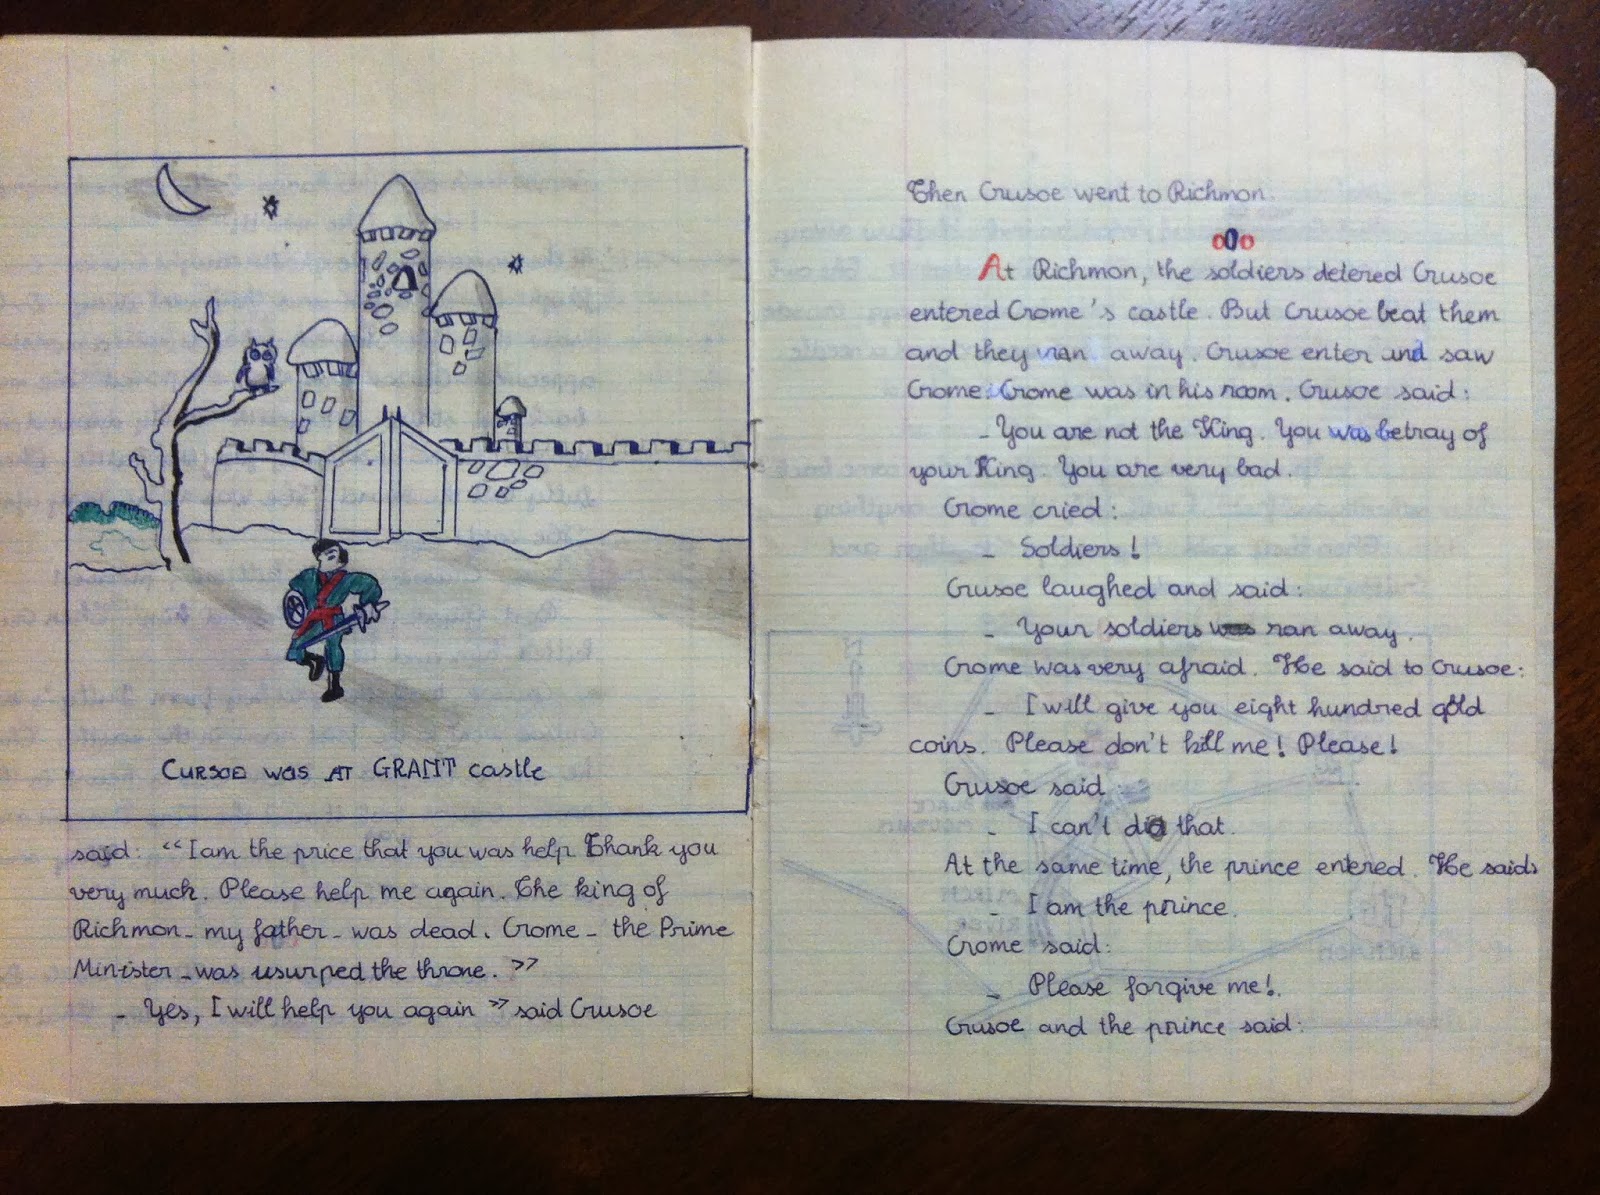 CURSOE WAS AT GRANT castle
said: “I am the price that you was help Thank you
very much. Please help me again. The king of
Richmon - my father - was dead. Crome - the Prime
Minister - was usurped the throne. »
- Yes, I will help you again » said Crusoe
Then Crusoe went to Richmon.
oOo
At Richmon, the soldiers detered Crusoe
entered Crome's castle. But Crusoe beat them
and they ran away. Crusoe enter and saw
Crome. Crome was in his room. Crusoe said:
- You are not the King. You was betray of
your King. You are very bad.
Crome cried:
- Soldiers!
Crusoe laughed and said:
- Your soldiers ran away.
Crome was very afraid. He said to Crusoe:
- I will give you eight hundred gold
coins. Please don't kill me! Please!
Crusoe said:
- I can't do that.
At the same time, the prince entered. He said:
- I am the prince.
Crome said:
- Please forgive me!
Crusoe and the prince said: